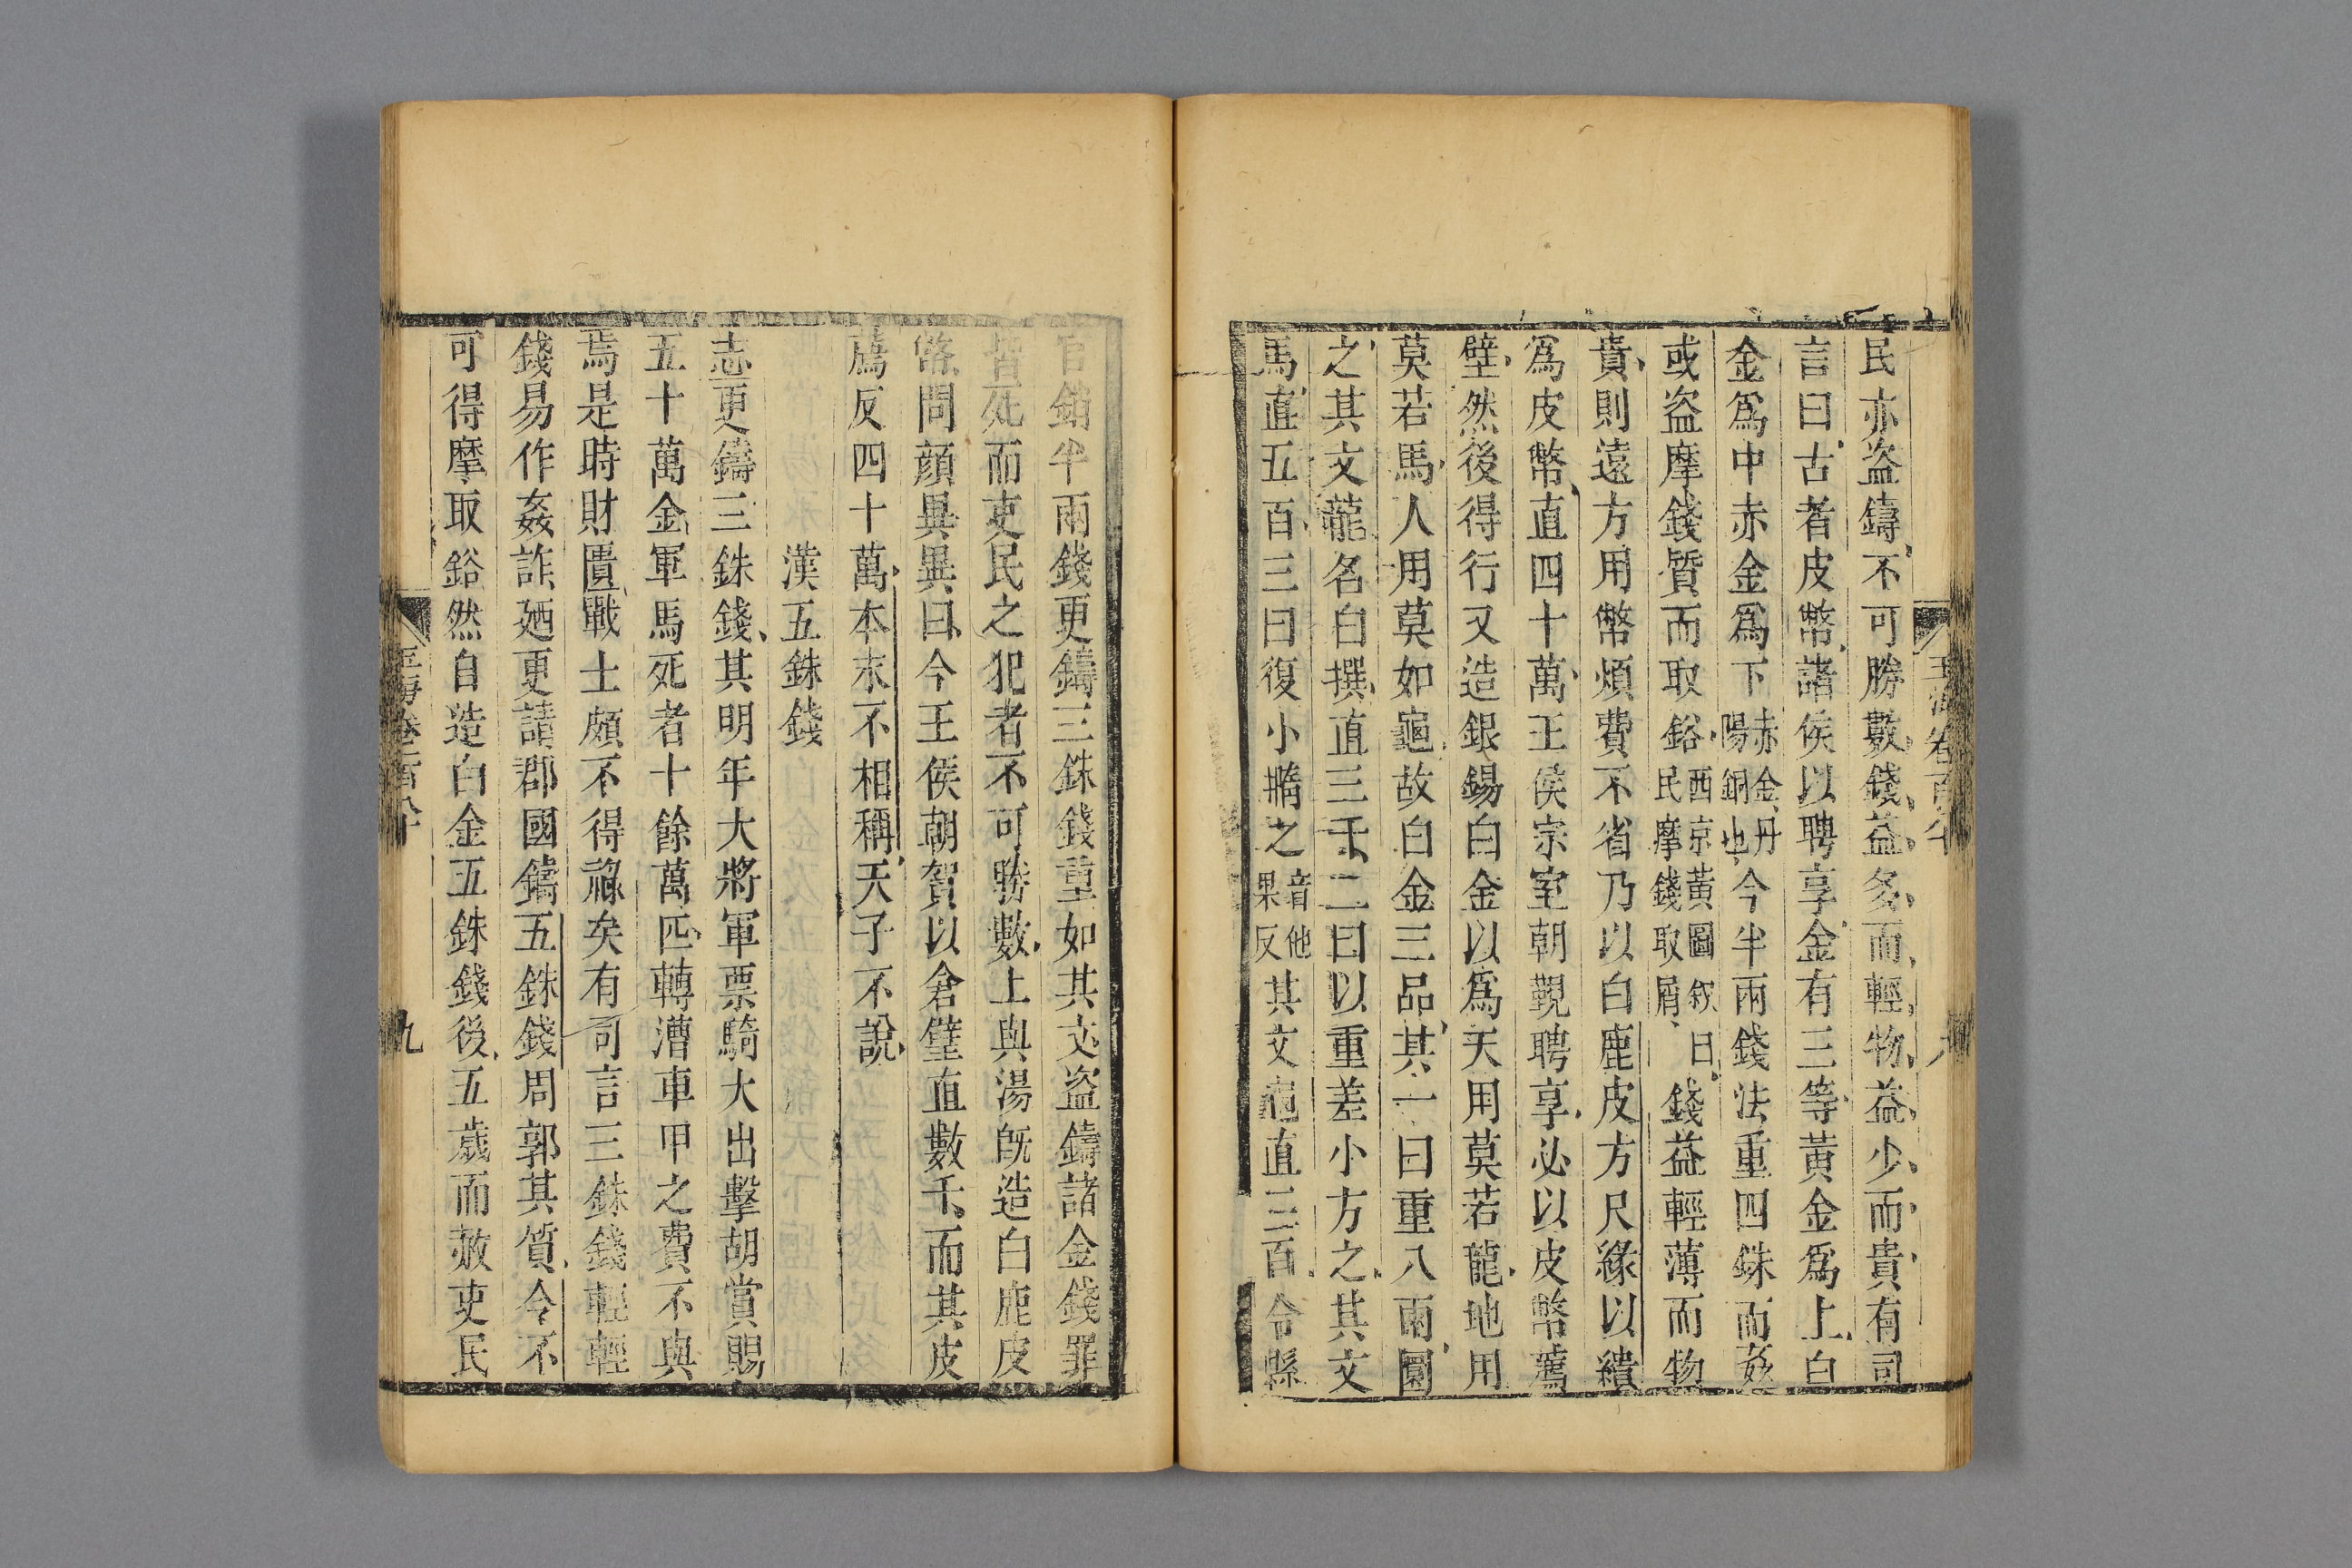 民亦盗鑄不可勝數錢益多而輕物益少而貴有司
言曰古者皮幣諸侯以聘享金有三等黃金爲上白
金爲中赤金爲下赤金丹陽銅也今半兩錢法重四銖而姦
或盗摩錢質而取鋊西京黃圖敘曰民摩錢取屑錢益輕薄而物
貴則遠方用幣煩費不省乃以白鹿皮方尺緣以繢
爲皮幣直四十萬王侯宗室朝覲聘享必以皮幣薦
璧然後得行又造銀錫白金以爲天用莫若龍地用
莫若馬人用莫如龜故白金三品其一曰重八兩圜
之其文龍名白撰直三千二曰以重差小方之其文
馬直五百三曰復小撱之音他果反其文龜直三百令縣
官銷半兩錢更鑄三銖錢重如其文盗鑄諸金錢罪
皆死而吏民之犯者不可勝數上與湯旣造白鹿皮
幣問顔異異曰今王侯朝賀以倉璧直數千而其皮
薦反四十萬本末不相稱天子不說
漢五銖錢
志更鑄三銖錢其明年大將軍票騎大出擊胡賞賜
五十萬金軍馬死者十餘萬匹轉漕車甲之費不與
焉是時財匱戰士頗不得祿矣有司言三銖錢輕輕
錢易作姦詐廼更請郡國鑄五銖錢周郭其質令不
可得摩取鋊然自造白金五銖錢後五歲而赦吏民
玉海卷一百八十
九